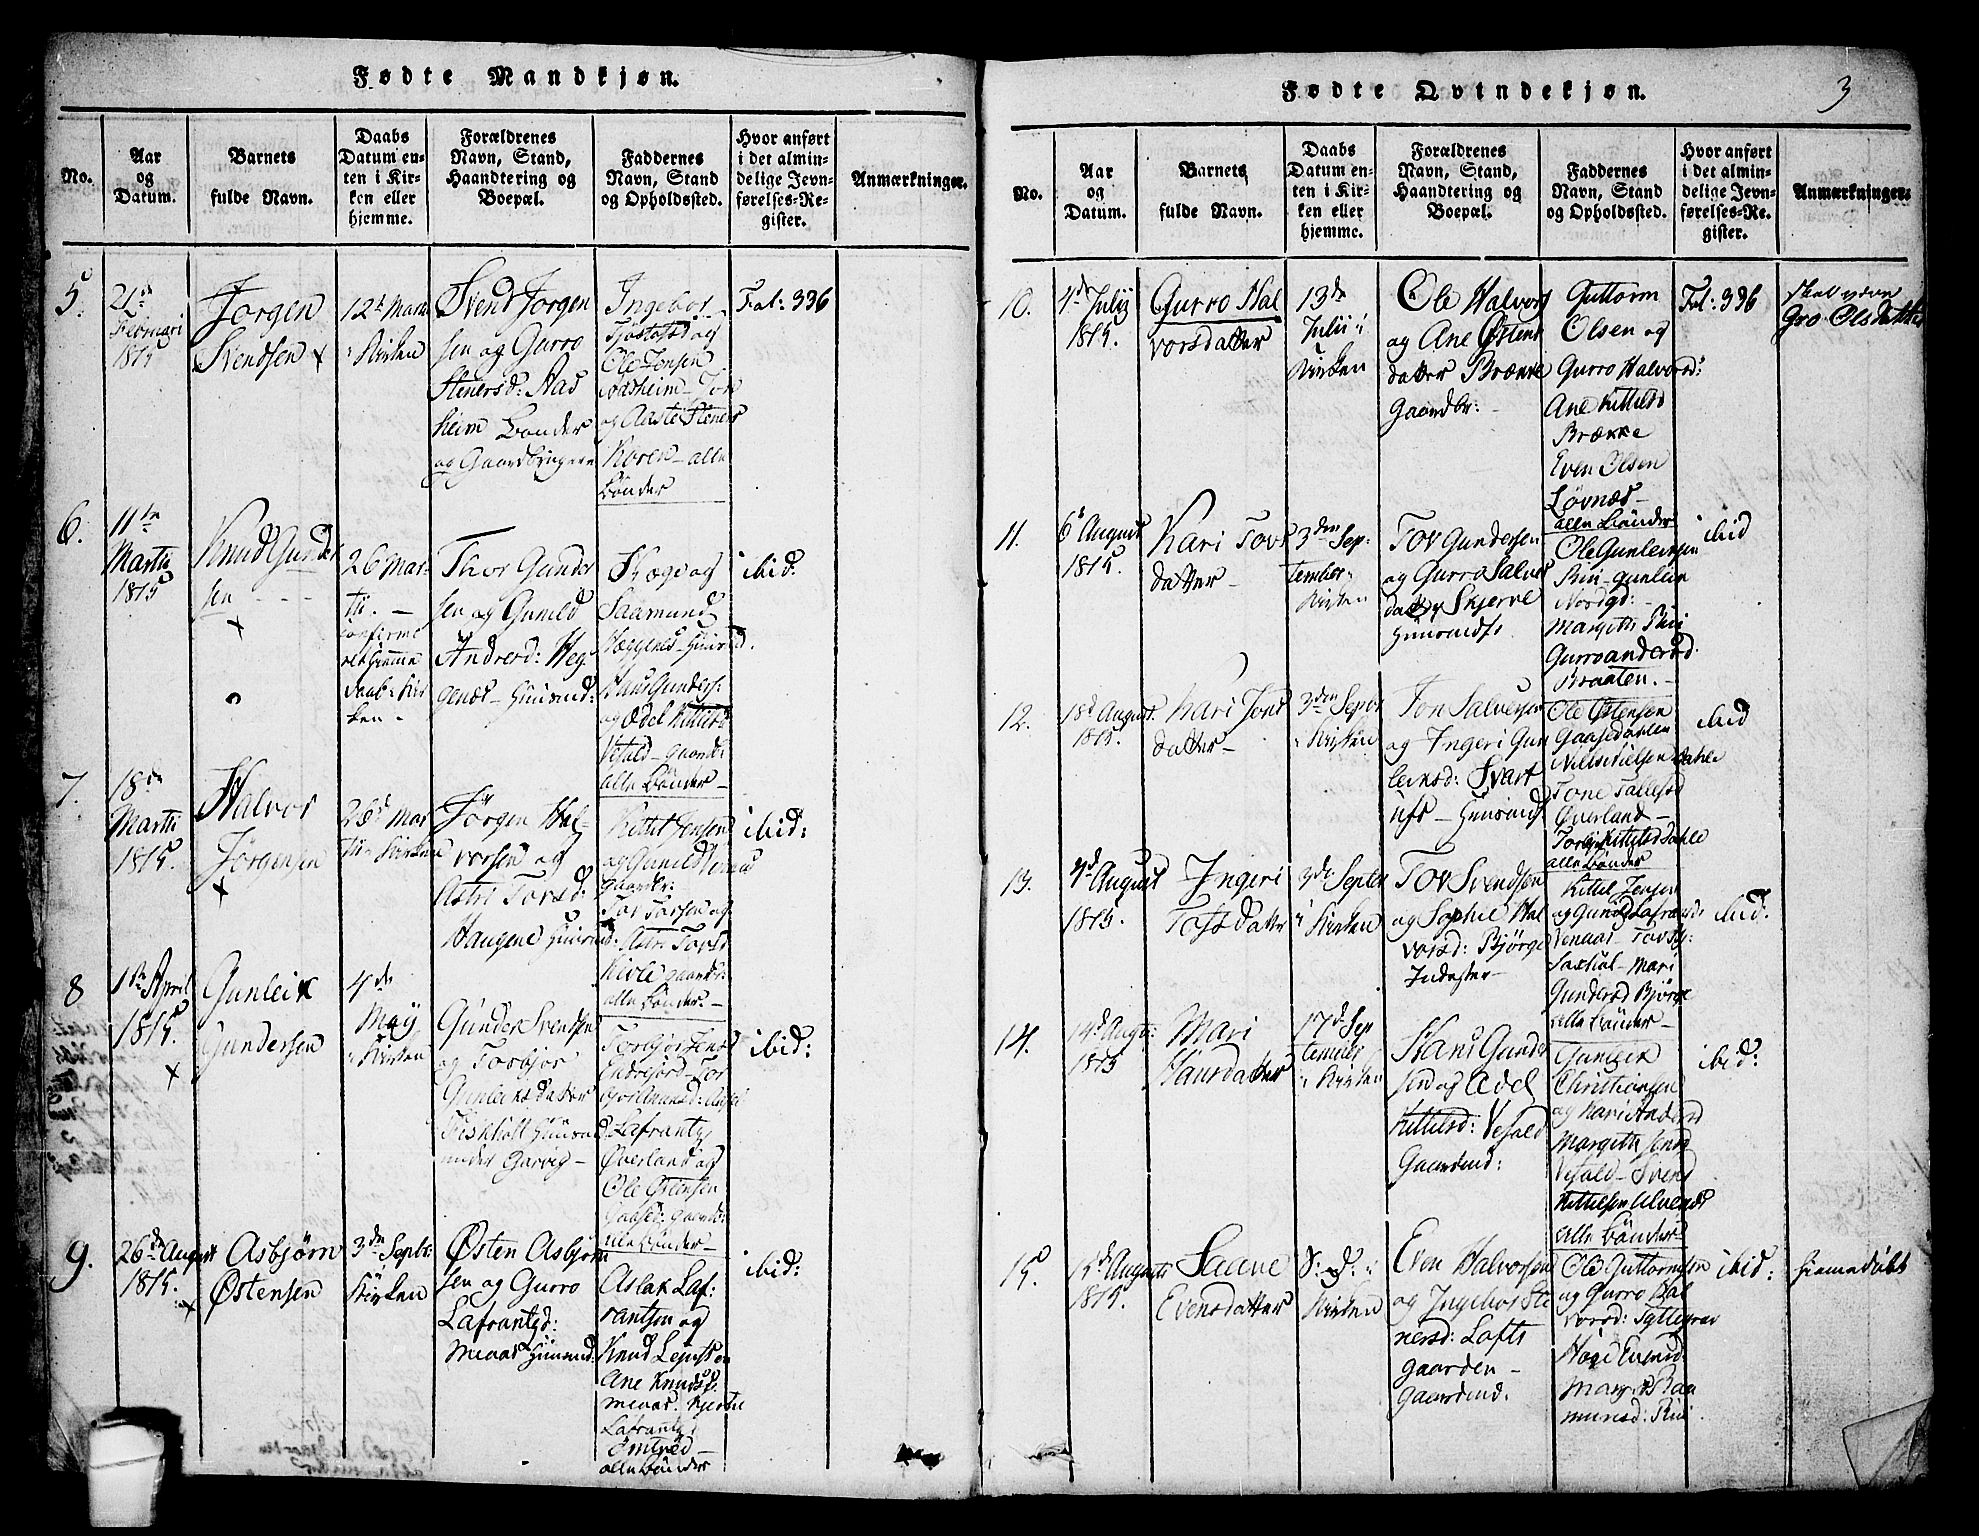 Fødte Mandkjøn.
No.
Aar
og
Datum.
Barnets
fulde Navn.
Daabs
Datum en-
ten i Kir-
ken eller
hjemme.
Forældrenes
Navn, Stand,
Haandtering og
Boepæl.
Faddernes
Navn, Stand
og Opholdssted.
Hvor anført
i det almin-
delige Jevn-
førelses-Re-
gister.
Anmærkninger.
5.
21de
Februari
1815
Jørgen
Svendsen x
12te Martii
i Kirken
Svend Jørgen
sen og Gurro
Stenersd: Aas
heim Bønder
og Gaardbrugere
Ingebor
Tjostofsd og
Ole Jensen
Aadsheim - Tov
og Aaste Steners
Koren - alle
Bønder
Fol: 336
6.
11te
Martii
1815
Knud Gunder
sen - - -
x
26 Mar-
tii. -
confirme
ret hiemme
daab: Kir
ken -
Thor Gunder
sen og Gunild
Andersd: Heg
genæs - Huusmd:
Saamund
Heggenes - Huusmd.
Hans Gunders:
og Edel Kittilsd
Vefald - gaardbr:
alle Bønder -
ibid:
7.
18de
Martii
1815.
Halvor
Jørgensen
x
26de Mar
tii - Kirken
Jørgen Hal-
vorsen og
Astri Torsd:
Haugene Huusmd:
Kittil Jensen
og Gunild Venaas
gaardbr:
Tov Torsen og
Astri Torsd
Kivle gaardbr:
alle Bønder. -
ibid:
8
1ste April
1815.
Gunleik
Gundersen
x
4de
May
i Kirken
Gunder Svendsen
og Torbjør
Gunleiksdatter
Fiskhølt Huusmd
under Garvig -
Torbjør Jensd
Lafrants
Øverland og
Ole Østensen
Gaased: gaardbr:
alle Bønder -
ibid:
9.
26de August
1815.
x
Asbjørn
Østensen
3die Septbr
Kirken
Østen Asbjørn
sen og Gurro
Lafrantsd:
Meaas Huusmd:
Aslak Laf:
rantsen og
Knud Leifsen
Ane Knudsd.
Meaas. Kjerste
Lafrants.
Omtvedt -
alle Bønder
ibid:
Fødte Qvindekjøn.
3
No.
Aar
og
Datum.
Barnets
fulde Navn.
Daabs
Datum en-
ten i Kir-
ken eller
hjemme.
Forældrenes
Navn, Stand,
Haandtering og
Boepæl.
Faddernes
Navn, Stand
og Opholdssted.
Hvor anført
i det almin-
delige Jevn-
førelses-Re-
gister.
Anmærkninger.
10.
4de Julij
1815.
Gurro Hal
vorsdatter
13de
Julij i
Kirken
Ole Halvors
og Ane Østens
datter Brække
Gaardbr: -
Guttorm
Olsen og
Gurro Halvorsd:
Ane Kittilsd
Brække
Even Olsen
Løvnæs -
alle Bønder
Fol: 336
skal være
Gro Olsdatter
11.
6te August
1815.
Kari Tovs
datter -
3den Sep-
tember
i Kirken
Tov Gundersen
og Gurro Salves
datter Skjerve
Huusmdf.
Ole Gunleiksen
Rui - Gunleik
Nordgd:
Margith Rui
Gurro Andersd.
Braaten. -
ibid
12.
18de August.
1815.
Kari Jons
datter -
3den Septbr
i Kirken
Jon Salvesen
og Ingeri Gun
leiksd: Svart
ufs - Huusmd
Ole Østensen
Gaasedahlen
Niels Nielsen Dahle
Tone Tallefsd
Øverland -
Torbjør Kittilsd Dahle
alle Bønder
ibid
13.
4de August
1815.
Ingeri
Tovsdatter
3die Septbr
i Kirken
Tov Svendsen
og Sophie Hal
vorsd: Bjørge
Inderster -
Kittil Jensen
og Gunild Lafrantsd:
Venaas -
Mari
Gundersd Bjørge
alle Bønder -
ibid:
14.
14de Augt:
1815
Mari
Hansdatter
17de Sep
tember
i Kirken
Hans Gunder
sen og Edel
Kittilsd: Vefald
Gaardmd:
Gunleik
Christiansen
og Kari Andersd
Margith Jensd
Vefald - Svend
Kittilsen Ulvenæs
alle Bønder -
ibid:
15.
15de Augusti
1815.
Saave
Evensdatter
S: d: i
Kirken
Even Halvorsen
og Ingebor Ste
nersd: Lofts
gaarden -
Gaardmd.
Ole Guttormsen
og Gurro Hal
vorsd: Tyttegrav
Hoge Evensd.
Margit Raa
mundsd: Rui.
ibid:
hiemedøbt